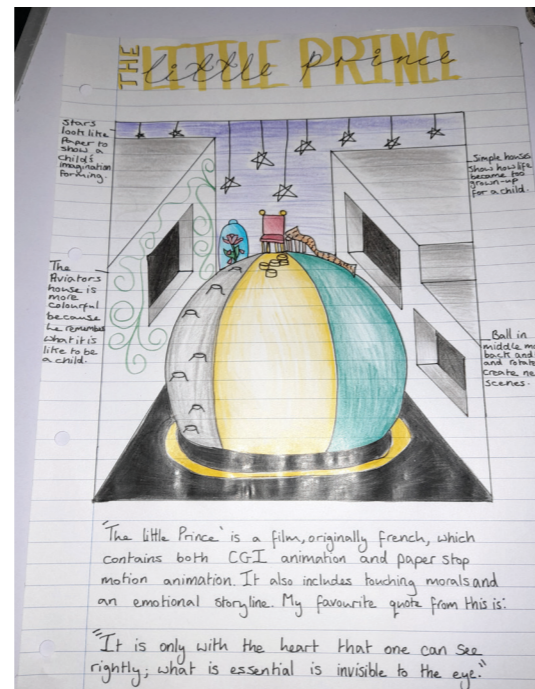 THE LITTLE PRINCE
little prince
Stars
look like
Paper to
show a
child's
imagination
forming.
Simple houses
show how life
became too
grown-up
for a child.
The
Aviators
house is
more
colourful
because
he remembers
what it is
like to be
a child.
Ball in
middle
back and
and rotate
create
scenes.
'The little Prince' is a film, originally french, which
contains both CGI animation and paper stop
motion animation. It also includes touching morals and
an emotional storyline. My favourite quote from this is:
"It is only with the heart that one can see
rightly; what is essential is invisible to the eye."